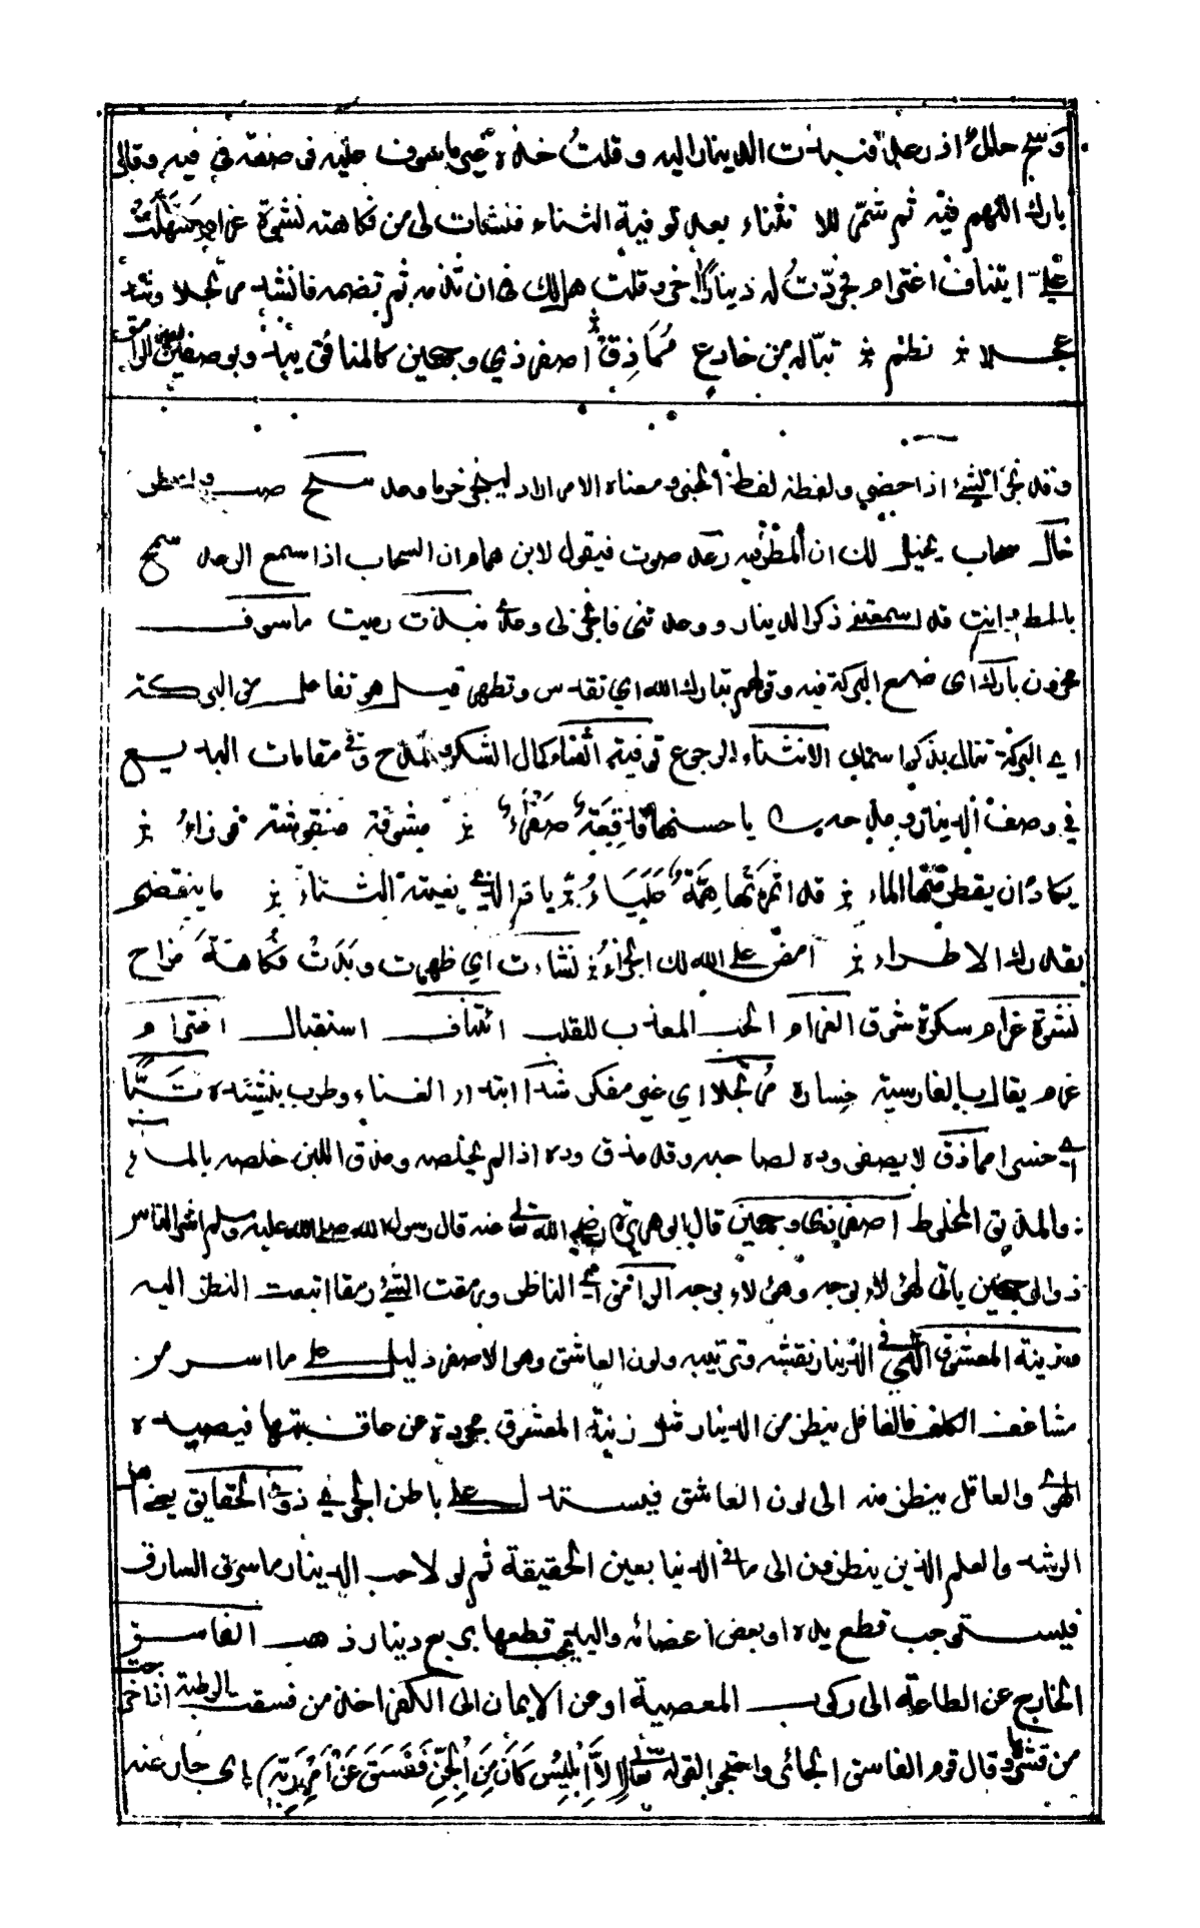 وسح خالك اذ رعد فنبذت الدينار اليه وقلت خذه غير ماسوف عليه فوضعه في فيه وقال
بارك اللهم فيه ثم شمر للانثناء بعد توفية الثناء فنشأت لي من فكاهته نشوة غرام سهلت
علي ائتناف اغترام فجردت له دينارا اخر وقلت هل لك في ان تذمه ثم تضمه فانشد مرتجلا وشدا
عجلا نظم تبا له من خادع مماذق اصفر ذي وجهين كالمنافق يبدو بوصفين لعين الرامق
وقد نجز الشئ اذا حضر ولفظه لفظ الخبر ومعناه الامر اراد لينجز حر ما وعد سح صب وامطر
خال سحاب يخيل لك ان المطر فيه رعد صوت فيقول لابن همام ان السحاب اذا سمع الرعد سمح
بالمطر وانت قد اسمعتني ذكر الدينار ووعدتني فانجز لي وعدك نبذت رميت ماسوف
محزون بارك اي ضع البركة فيه وقولهم تبارك الله اي تقدس وتطهر قيل هو تفاعل من البركة
اي البركة تنال بذكر اسمك الانثناء الرجوع توفية الثناء كمال الشكر والمدح وفي مقامات البديع
في وصف الدينار وهي حديث يا حسنها فاقعة صفراء ممشوقة منقوشة قوراء
يكاد ان يقطر منها الماء قد اثمرتها همة علياء يا ذا الذي يعنيه الثناء ما ينقضي
بقدرك الاطراء امض على الله لك الجزاء نشأت اي ظهرت وبدت فكاهة مزاح
نشوة غرام سكرة شوق الغرام الحب المعذب للقلب ائتناف استقبال اغترام
غرم يقال بالفارسية خسارة مرتجلا اي غير مفكر شدا ابتدا الغناء وطرب بنشيده تبا
اي خسرا مماذق لا يصفي وده لصاحبه وقد مذق وده اذا لم يخلصه ومذق اللبن خلطه بالماء
والمذيق المخلوط اصفر ذي وجهين قال ابو هريرة رضي الله تعالى عنه قال رسول الله صلى الله عليه وسلم اشر الناس
ذو الوجهين ياتي هؤلاء بوجه وهؤلاء بوجه الرامق اي الناظر ورمقت الشئ رمقا اتبعت النظر اليه
زينة المعشوق التي في الدينار نقشه وتزيينه ولون العاشق وهو الاصفر دليل على ما اسر من
مشاغف الكلف فالغافل ينظر من الدينار مثل زينة المعشوق مجردة عن عاقبتها فيصيده
الهوى والعاقل ينظر منه الى لون العاشق فيستدل على باطن الجوى ذوي الحقايق يعني اهل
الرشد والعلم الذين ينظرون الى ما في الدنيا بعين الحقيقة ثم لولا حب الدينار ما سرق السارق
فيستوجب قطع يده او بعض اعضائه واليد يجب قطعها بربع دينار ذهب الفاسق
الخارج عن الطاعة الى ركوب المعصية او من الايمان الى الكفر اخذ من فسقت الرطبة اذا خرجت
من قشرها وقال قوم الفاسق الجائر واحتجوا بقوله تعالى (الا ابليس كان من الجن ففسق عن امر ربه) اي جار عنه